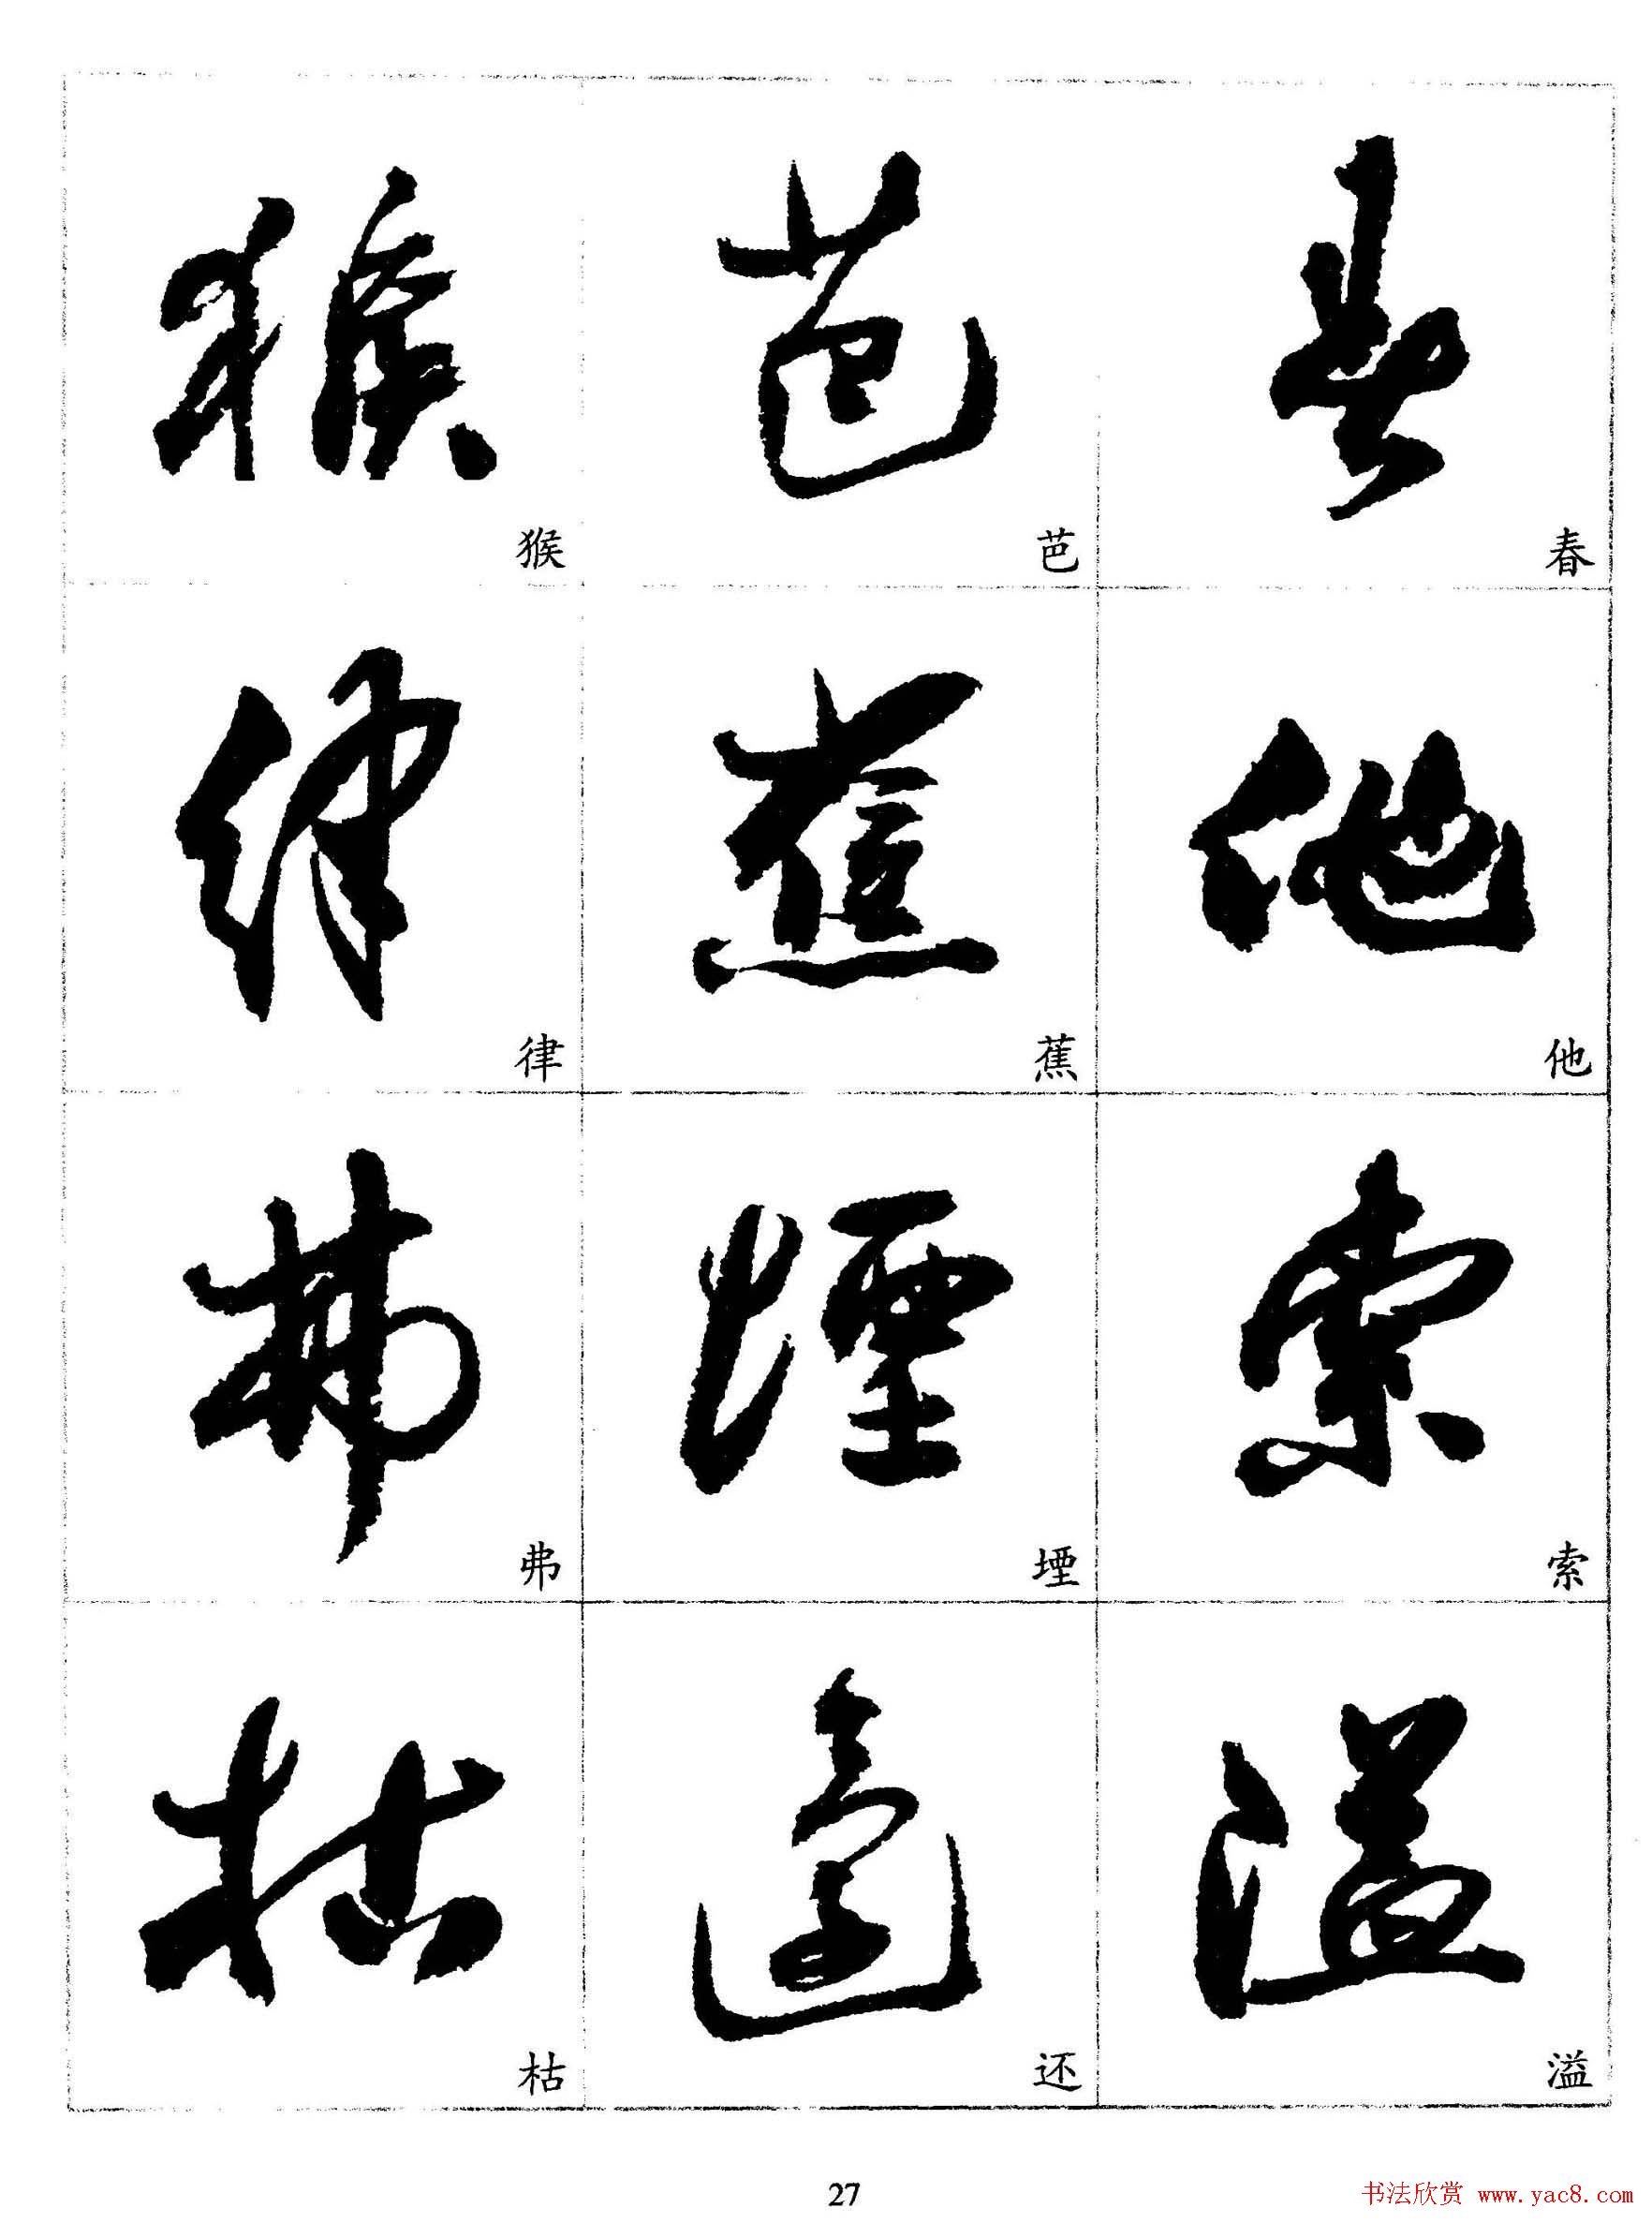 春
他
索
溢
芭
蕉
堙
还
猴
律
弗
枯
27
书法欣赏 www.yac8.com